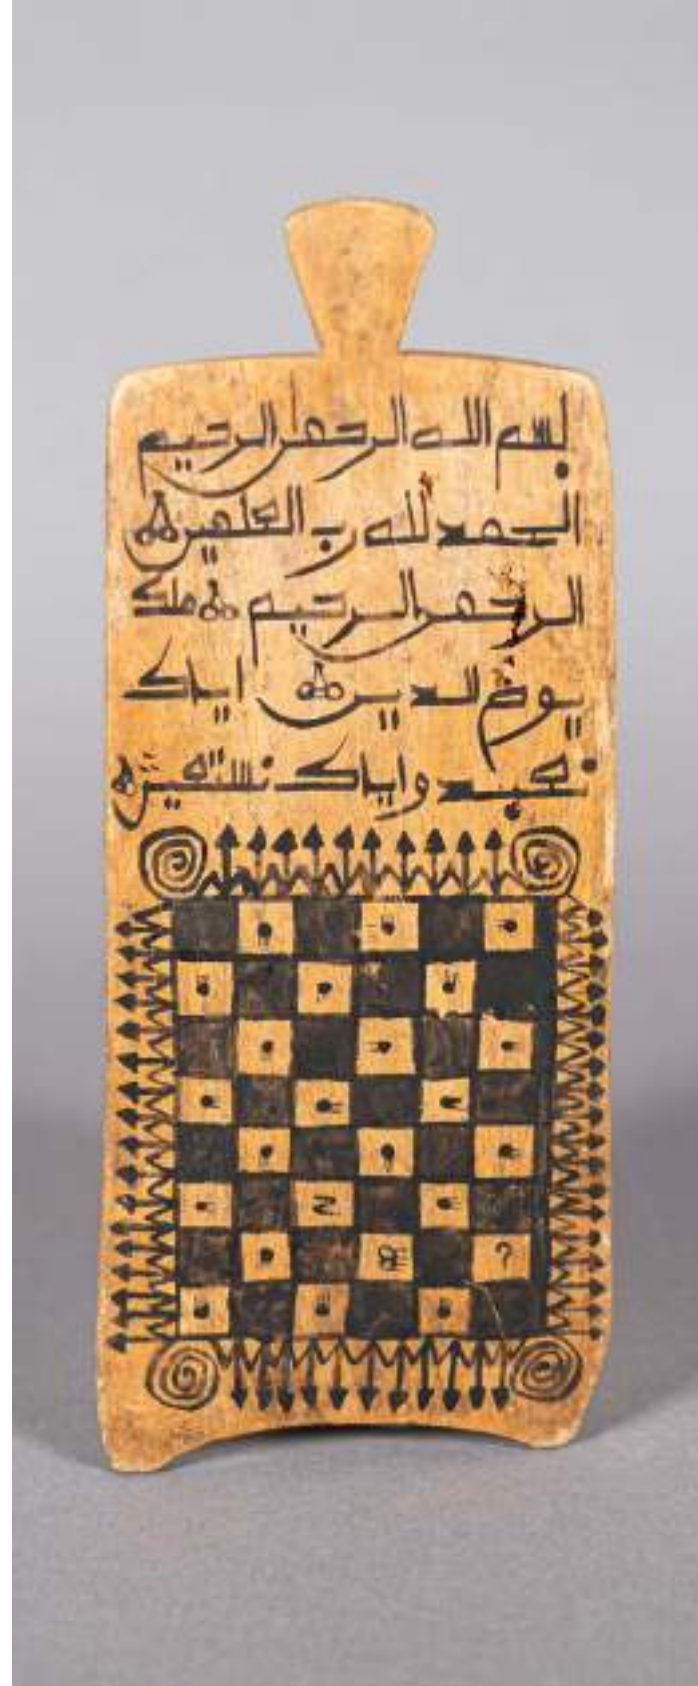 بسم الله الرحمن الرحيم
الحمد لله رب العلمين
الرحمن الرحيم ملك
يوم الدين اياك
نعبد واياك نستعين